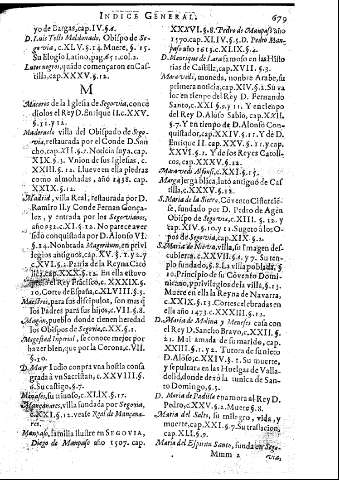 INDICE GENERAL.
679
yo de Bargas, cap. IV. §. 4.
D. Luis Tello Maldonado, Obispo de Se-
govia, c. XLV. §. 14. Muere, §. 15.
Su Elogio Latino, pag. 651. col. 2.
Luteranos, quādo comenzaron en Cas-
tilla, cap. XXXX. §. 12.
M
Maceros de la Iglesia de Segovia, conce
diolos el Rey D. Enrique II. c. XXV.
§. 11. y 12.
Maderuelo villa del Obispado de Sego-
via, restaurada por el Conde D. San-
cho, cap. §. 7. Noticia suya, cap.
XIX. §. 3. Vnion de sus Iglesias, c.
XXIII. §. 12. Llueve en ella piedras
como almohadas, año 1438. cap.
XXIX. §. 12.
Madrid, villa Real, restaurada por D.
Ramiro II. y Conde Fernan Gonça-
lez, y entrada por los Segovianos,
año 932. c. XI. §. 12. No parece aver
sido conquistada por D. Alonso VI.
§. 14. Nombrada Mageritum, en privi
legios antiguos, cap. XV. §. 7. y 2. y
c. XVI. §. 2. Patria de la Reyna Ca
cap. XXXX. §. 12. En ella estuvo
del Rey Francisco, c. XXXIX. §.
10. Corte de España, c. XLVIII. §. 5.
Maestros, para sus discipulos, son mas q̄
los Padres para sus hijos, c. VII. §. 8.
Magán, pueblo donde tienen heredad
los Obispos de Segovia, c. XX. §. 1.
Magestad Imperial, se conoce mejor por
hazer bien, que por la Corona, c. VII.
§. 10.
D. Mayr Iudio compra vna hostia consa
grada à vn Sacristan, c. XXVIII. §.
6. Su castigo, §. 7.
Minases, su triunfo, c. XLIX. §. 17.
Mançanares, villa fundada por Segovia,
c. XXI. §. 12. vease Real de Mançana-
res.
Manpaso, familia ilustre en SEGOVIA,
Diego de Manpaso año 1507. cap.
XXXVI. §. 8. Pedro de Manpaso año
1570. cap. XLIV. §. 5. D. Pedro Man-
paso año 1613. c. XLIX. §. 4.
D. Manrique de Lara famoso en las Histo
rias de Castilla, cap. XVII. §. 2.
Maravedi, moneda, nombre Arabe, su
primera noticia, cap. XIV. §. 2. Su va
lor en tiempo del Rey D. Fernando
Santo, c. XXI. §. 5 y 11. Y en tiempo
del Rey D. Alonso Sabio, cap. XXII.
§. 7. Y en tiempo de D. Alonso Con-
quistador, cap. XXIV. §. 17. Y de D.
Enrique II. cap. XXV. §. 11. y cap.
XXVI. §. 2. Y de los Reyes Catoli-
cos, cap. XXXV. §. 17.
Maravedis Alfonsi, c. XXI. §. 15.
Marga jerga blāca, luto antiguo de Cas-
tilla, c. XXXV. §. 12.
S. Maria de la Sierra, Cōvēto Cisterciē-
se, fundado por D. Pedro de Agen
Obispo de Segovia, c. XIII. §. 12. y
cap. XIV. §. 10. y 11. Sugeto à los O-
pos de Segovia, cap. XIX. §. 2.
S. Maria de Nieva, villa, su Imagen des-
cubierta, c. XXVII. §. 5. y 7. Su tem-
plo fundado, §. 8. La villa poblada, §
10. Principio de su Cōvēto Domini-
cano, y privilegios de la villa, §. 13.
Muere en ella la Reyna de Navarra,
c. XXIX. §. 13. Cortes celebradas en
ella año 1473. c. XXXIII. §. 12.
D. Maria de Molina y Meneses casa con
el Rey D. Sancho Bravo, c. XXII. §.
21. Mal amada de su marido, cap.
XXIII. §. 1. y 2. Tutora de su nieto
D. Alōso, c. XXIV. §. 1. Su muerte,
y sepultura en las Huelgas de Valla-
dolid, donde dexò la tunica de San-
to Domingo, §. 5.
D. Maria de Padilla en amora al Rey D.
Pedro, c. XXV. §. 2. Muere §. 8.
Maria del Salto, su milagro, vida, y
muerte, cap. XXI. §. 6. y 7. Su traslacion,
cap. XLI. §. 9.
Maria del Espiritu Santo, funda en Sego-
Mmm 2
via,